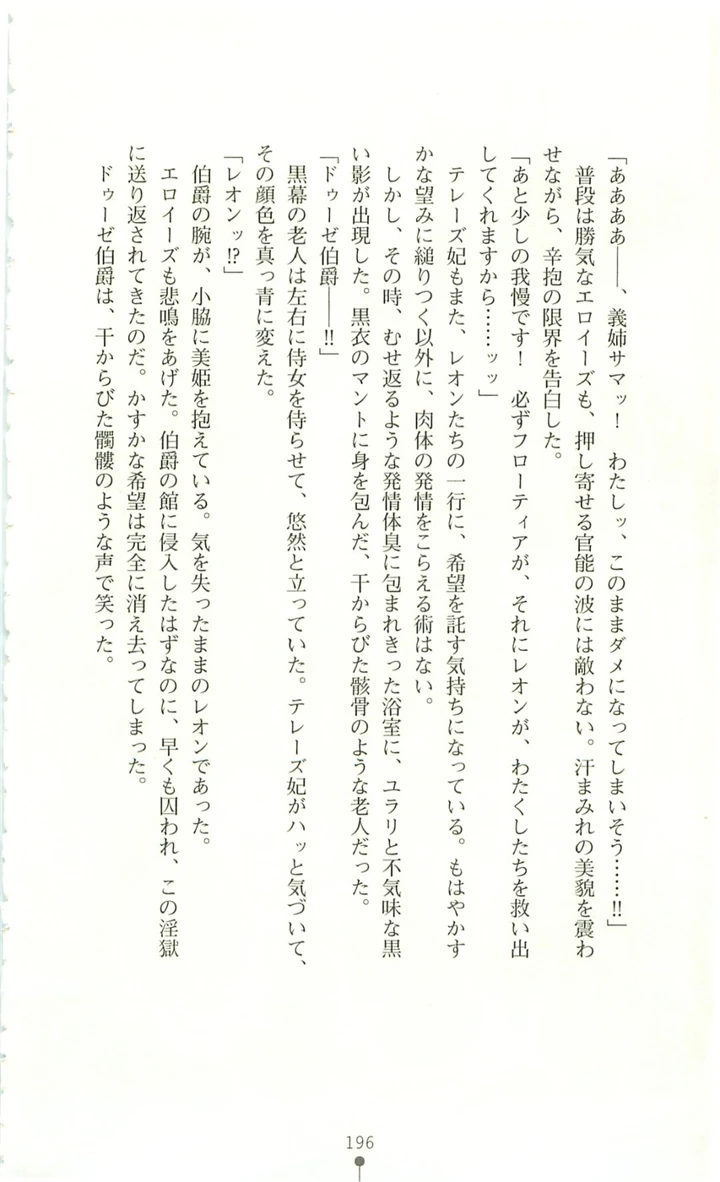 「ああああ――、義姉サマッ！　わたしッ、このままダメになってしまいそう……‼」
　普段は勝気なエロイーズも、押し寄せる官能の波には敵わない。汗まみれの美貌を震わ
せながら、辛抱の限界を告白した。
「あと少しの我慢です！　必ずフローティアが、それにレオンが、わたくしたちを救い出
してくれますから……ッッ」
　テレーズ妃もまた、レオンたちの一行に、希望を託す気持ちになっている。もはやかす
かな望みに縋りつく以外に、肉体の発情をこらえる術はない。
　しかし、その時、むせ返るような発情体臭に包まれきった浴室に、ユラリと不気味な黒
い影が出現した。黒衣のマントに身を包んだ、干からびた骸骨のような老人だった。
「ドゥーゼ伯爵――‼」
　黒幕の老人は左右に侍女を侍らせて、悠然と立っていた。テレーズ妃がハッと気づいて、
その顔色を真っ青に変えた。
「レオンッ⁉」
　伯爵の腕が、小脇に美姫を抱えている。気を失ったままのレオンであった。
　エロイーズも悲鳴をあげた。伯爵の館に侵入したはずなのに、早くも囚われ、この淫獄
に送り返されてきたのだ。かすかな希望は完全に消え去ってしまった。
　ドゥーゼ伯爵は、干からびた髑髏のような声で笑った。
196